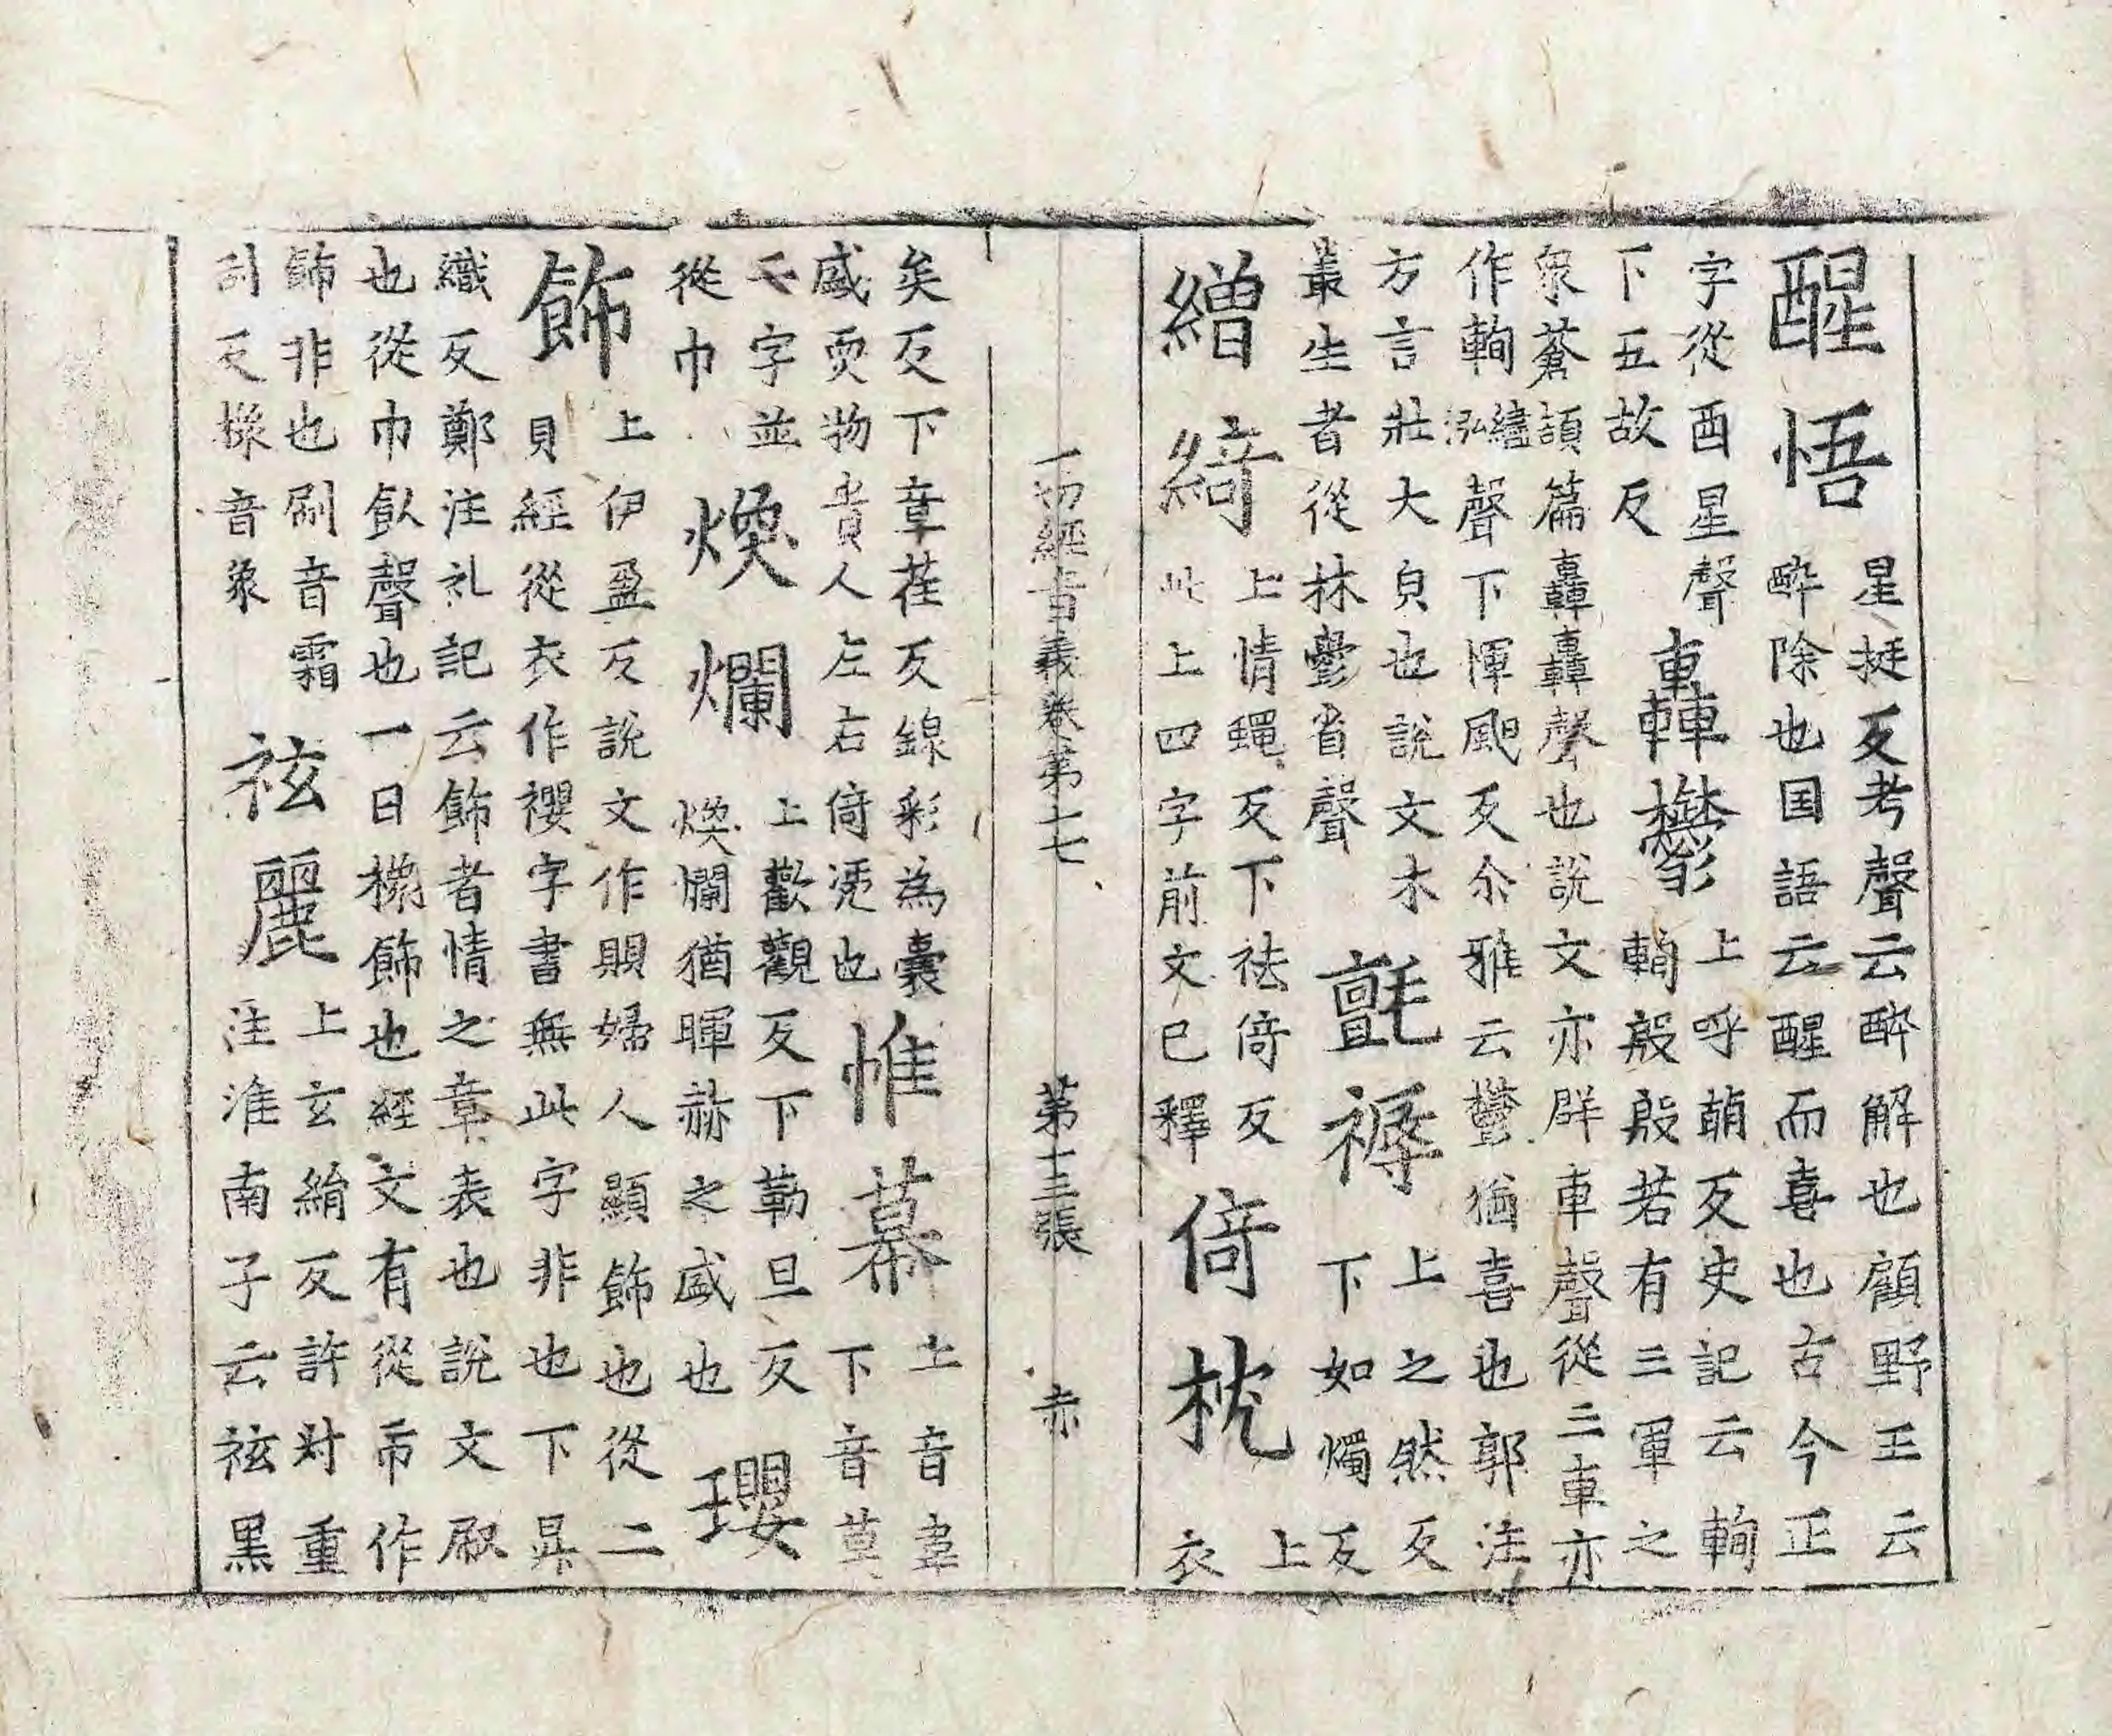 醒悟
星挺反考聲云醉解也顧野王云
醉除也国語云醒而喜也古今正
字從酉星聲
下五故反
轟欝
上呼萌反史記云輷
輷殷殷若有三軍之
衆蒼頡篇轟轟聲也說文亦群車聲從三車亦
作輷繣泓聲下惲颶反尒雅云欝猶喜也郭注
方言壯大皃也說文木
叢生者從林鬱省聲
氈褥
上之然反
下如燭反
繒綺
上情蠅反下祛倚反
此上四字前文已釋
倚枕
上
衣
一切經音義卷第十七 第十三張 赤
矣反下章荏反線彩為囊
盛耎物貴人左右倚凭也
帷幕
上音韋
下音莫
二字並
從巾
煥爛
上歡觀反下勒旦反
煥爛猶暉赫之盛也
瓔
飾
上伊盈反說文作賏婦人顯飾也從二
貝經從衣作襖字書無此字非也下昇
織反鄭注礼記云飾者情之章表也說文㕞
也從巾飤聲也一曰襐飾也經文有從帀作
餝非也刷音霜
刮反襐音象
袨麗
上玄絹反許対重
注淮南子云袨黑